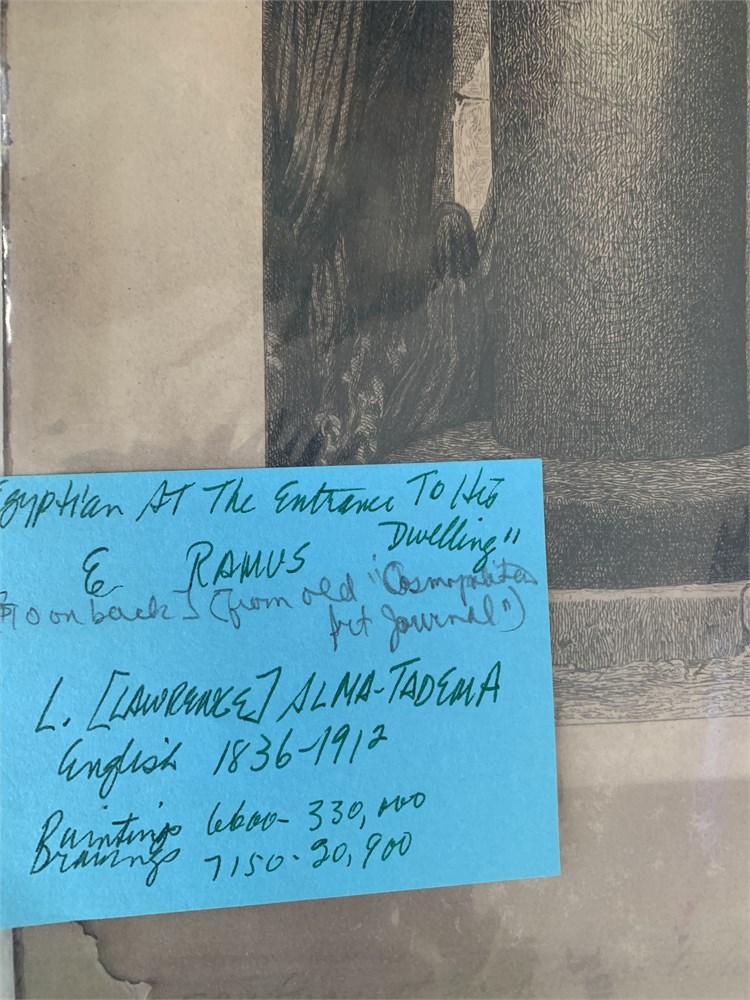 Egyptian At The Entrance To His
Dwelling"
E RAMUS
$10 on back] (from old "Cosmopolitan
Art Journal")
L. [LAWRENCE] ALMA-TADEMA
English 1836-1912
Paintings 6600- 330,000
Drawings 7150-20,900